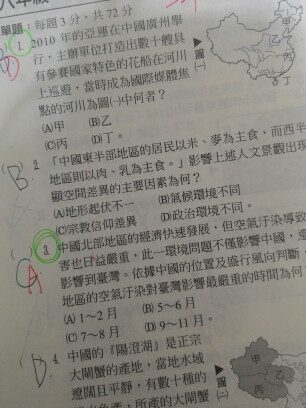 單題：每題 3 分，共 72 分
D
1. 2010 年的亞運在中國廣州舉
行，主辦單位打造出數十艘具
有參賽國家特色的花船在河川
上巡遊，當時成為國際媒體焦
點的河川為圖㈠中何者？
(A)甲 (B)乙
(C)丙 (D)丁。
圖㈠
B
2. 「中國東半部地區的居民以米、麥為主食，而西半
地區則以肉、乳為主食。」影響上述人文景觀出現
顯空間差異的主要因素為何？
(A)地形起伏不一 (B)氣候環境不同
(C)宗教信仰差異 (D)政治環境不同。
C
A
3. 中國北部地區的經濟快速發展，但空氣汙染導致
害也日益嚴重，此一環境問題不僅影響中國，還
影響到臺灣。依據中國的位置及盛行風向判斷，
地區的空氣汙染對臺灣影響最嚴重的時間為何
(A) 1～2 月 (B) 5～6 月
(C) 7～8 月 (D) 9～11 月。
D
4. 中國的『陽澄湖』是正宗
大閘蟹的產地，當地水域
遼闊且平靜，有數十種的
水色產，所產的大閘蟹
圖㈡
甲
乙
丙